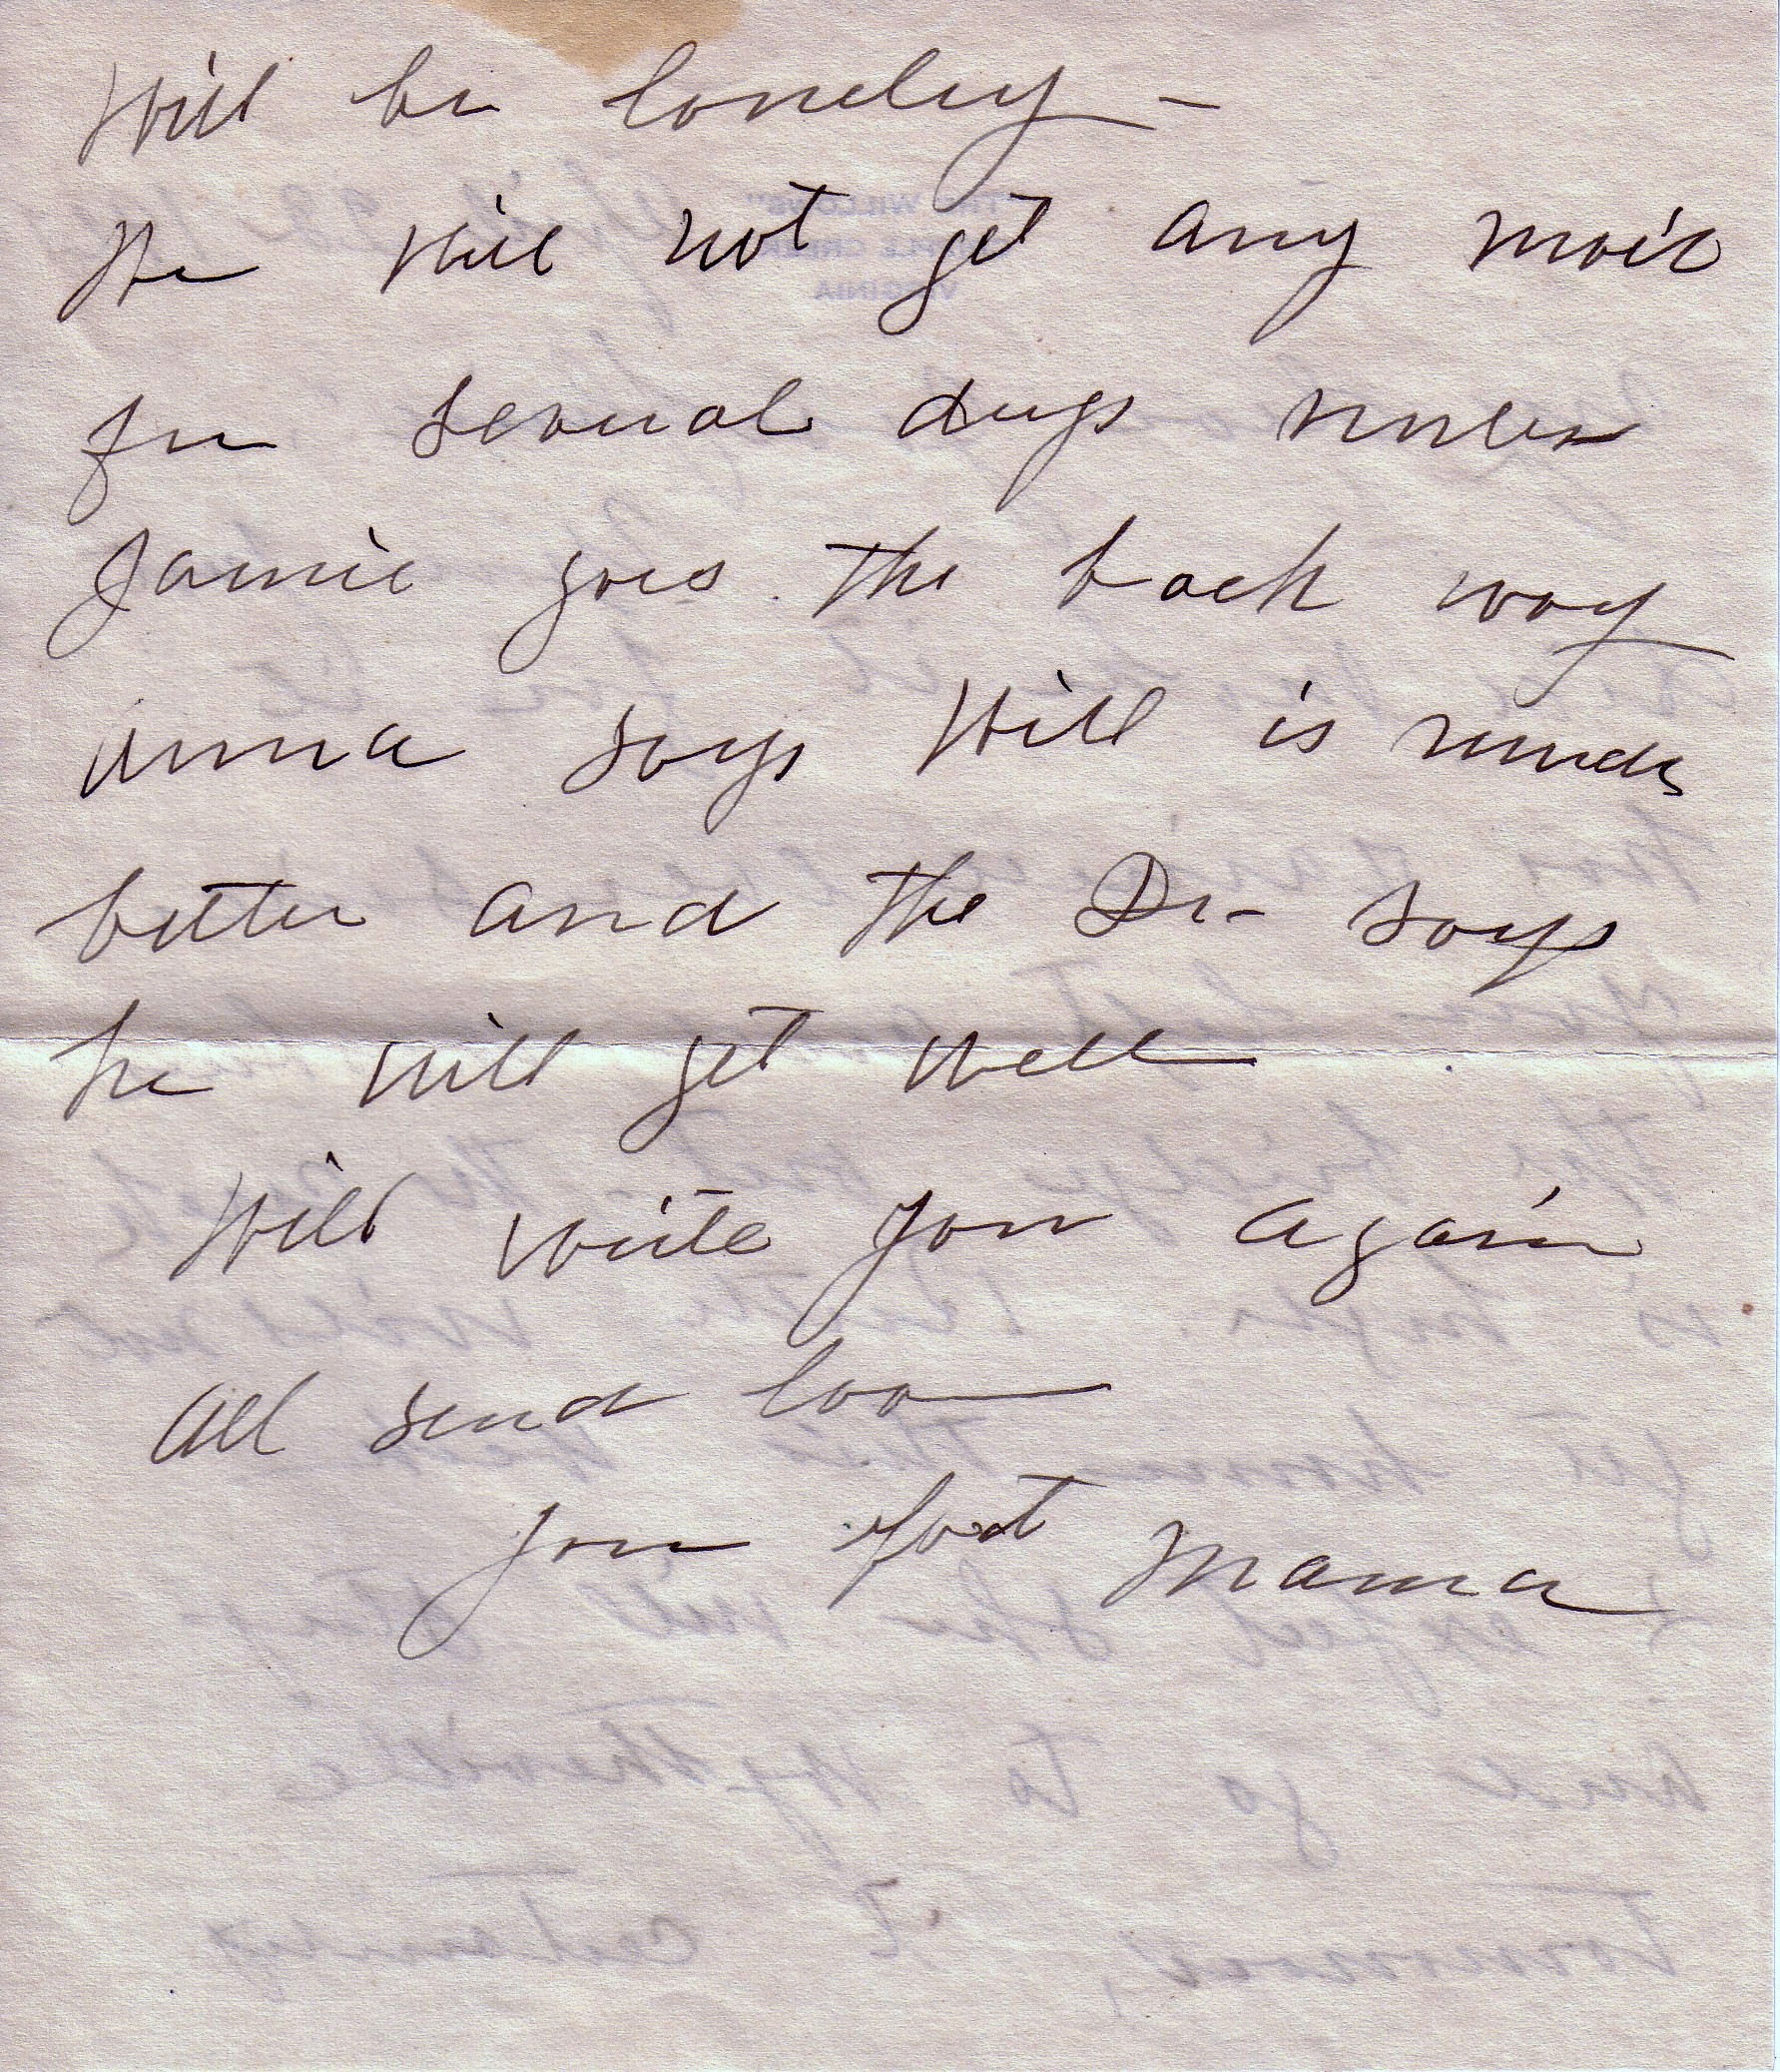 Will be lonely -
We will not get any mail
for several days unless
Jamie goes the back way
Anna says Will is much
better and the Dr - says
he will get well
Will write you again
All send love
your Mama